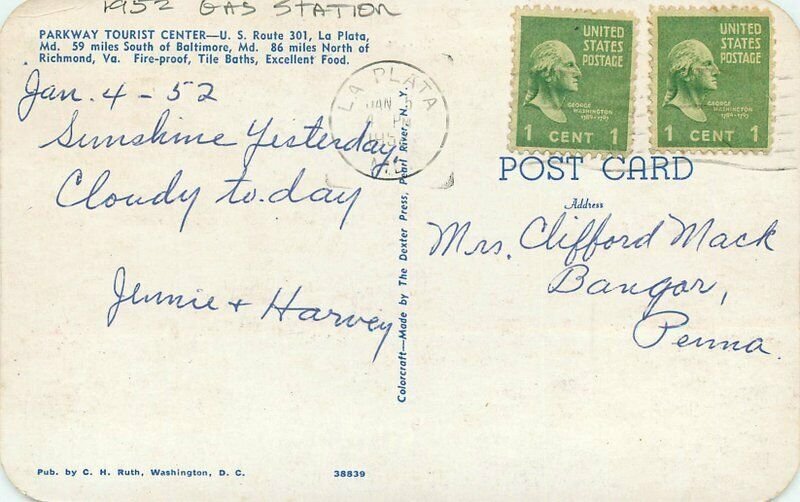 1952 GAS STATION
PARKWAY TOURIST CENTER—U. S. Route 301, La Plata,
Md. 59 miles South of Baltimore, Md. 86 miles North of
Richmond, Va. Fire-proof, Tile Baths, Excellent Food.
Jan. 4 - 52
Sunshine Yesterday
Cloudy to-day
Jennie + Harvey
Pub. by C. H. Ruth, Washington, D. C.
38839
Colorcraft—Made by The Dexter Press, Pearl River, N. Y.
LA PLATA
JAN
MD.
UNITED
STATES
POSTAGE
GEORGE
WASHINGTON
1789-1797
1 CENT 1
UNITED
STATES
POSTAGE
GEORGE
WASHINGTON
1789-1797
1 CENT 1
POST CARD
Address
Mrs. Clifford Mack
Bangor,
Penna.